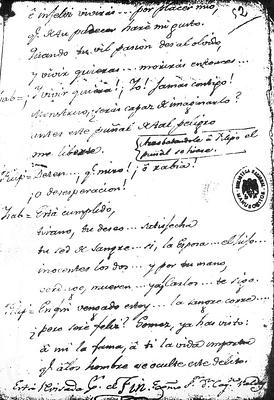 é infeliz vivirás... por placer mio,
q.e á tu pudor en hará mi gusto.
Quando tu vil pasion des al olvido
y vivir quieras... morirás entonces...
Isab= ¡Vivir quiera! ¡Yo! Jamás contigo!
Monstruo, ¿serás capaz de imaginarlo?
antes este puñal de tal peligro
me liberte. arrebatandole á Felipe el puñal se hiere.
Felip= Deten... ¡q. miro! ¡ó rabia!
¡o desesperacion!
Isab= Está cumplido,
tirano, tu deseo... satisfecha
tu sed de sangre... si, la Esposa... el hijo...
inocentes los dos... y por tu mano
mueren... Carlos... te sigo.
Felip= En fin vengado estoy... la sangre corre...
¿pero seré feliz? Gomez, ya has visto:
á mi la fama, á ti la vida importa
q.e á los hombres se oculte este delito.
Está revisada Fin
52